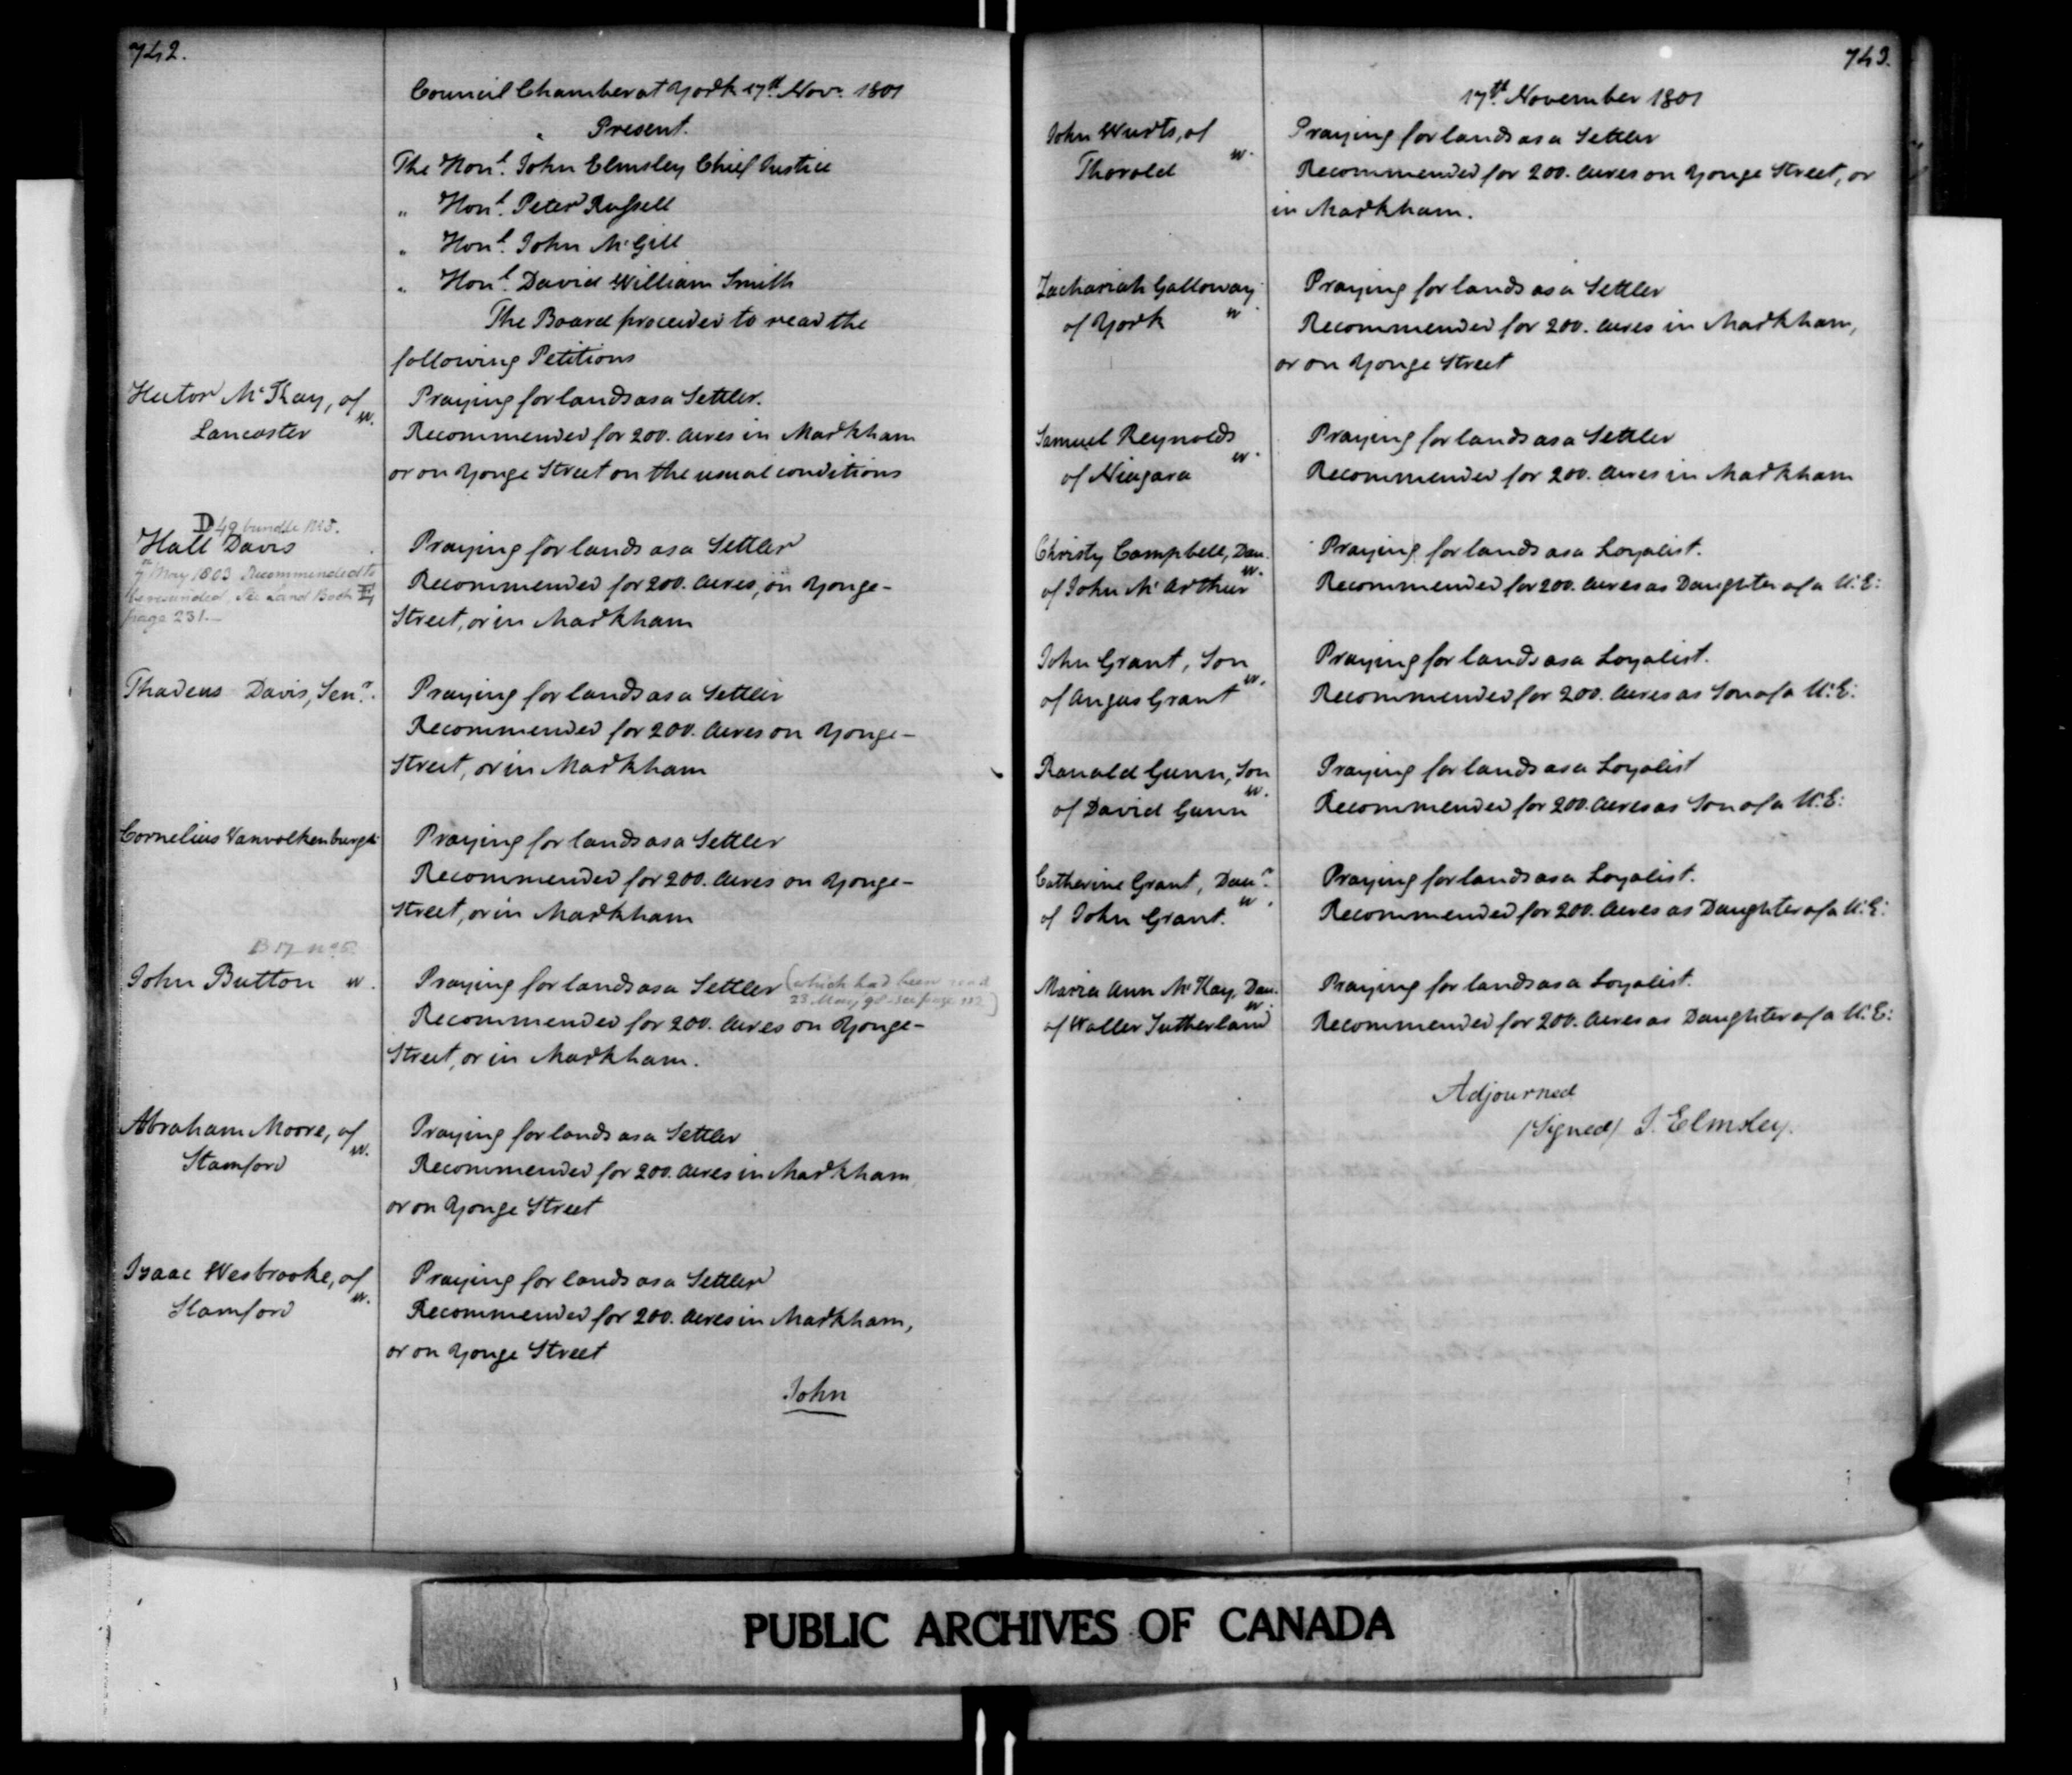 742.
Council Chamber at York 17th Nov. 1801
" Present.
The Honl. John Elmsley Chief Justice
" Honl. Peter Russell
" Honl. John McGill
" Honl. David William Smith
The Board proceeded to read the
following Petitions
Hector McKay, of w.
Lancaster
Praying for lands as a Settler.
Recommended for 200. Acres in Markham
or on Yonge Street on the usual conditions
D 49 bundle M5.
Hall Davis
7th May 1803 Recommended to
be rescinded, See Land Book E,
page 231.—
Praying for lands as a Settler
Recommended for 200. Acres, on Yonge-
Street, or in Markham
Thadeus Davis, Senr.
Praying for lands as a Settler
Recommended for 200. Acres on Yonge-
Street, or in Markham
Cornelius Vanvolkenburgh
Praying for lands as a Settler
Recommended for 200. Acres on Yonge-
Street, or in Markham
B 17 no 5
John Button w.
Praying for lands as a Settler (which had been read
23 May 98 - see page 112)
Recommended for 200. Acres on Yonge-
Street, or in Markham.
Abraham Moore, of w.
Stamford
Praying for lands as a Settler
Recommended for 200. Acres in Markham
or on Yonge Street
Isaac Wesbrooke, of w.
Stamford
Praying for lands as a Settler
Recommended for 200. Acres in Markham,
or on Yonge Street
John
743.
17th. November 1801
John Wurts, of
Thorold w.
Praying for lands as a Settler
Recommended for 200. Acres on Yonge Street, or
in Markham.
Zachariah Galloway
of York w.
Praying for lands as a Settler
Recommended for 200. Acres in Markham,
or on Yonge Street
Samuel Reynolds w.
of Niagara
Praying for lands as a Settler
Recommended for 200. Acres in Markham
Christy Campbell, Dau. w.
of John McArthur
Praying for lands as a Loyalist.
Recommended for 200. Acres as Daughter of a U.E:
John Grant, Son w.
of Angus Grant
Praying for lands as a Loyalist.
Recommended for 200. Acres as Son of a U.E:
Ranald Gunn, Son w.
of David Gunn
Praying for lands as a Loyalist
Recommended for 200. Acres as Son of a U.E:
Catherine Grant, Daur. w.
of John Grant.
Praying for lands as a Loyalist.
Recommended for 200. Acres as Daughter of a U.E:
Maria Ann McKay, Dau. w.
of Walter Sutherland
Praying for lands as a Loyalist.
Recommended for 200. Acres as Daughter of a U.E:
Adjourned
/Signed/ J. Elmsley.
PUBLIC ARCHIVES OF CANADA